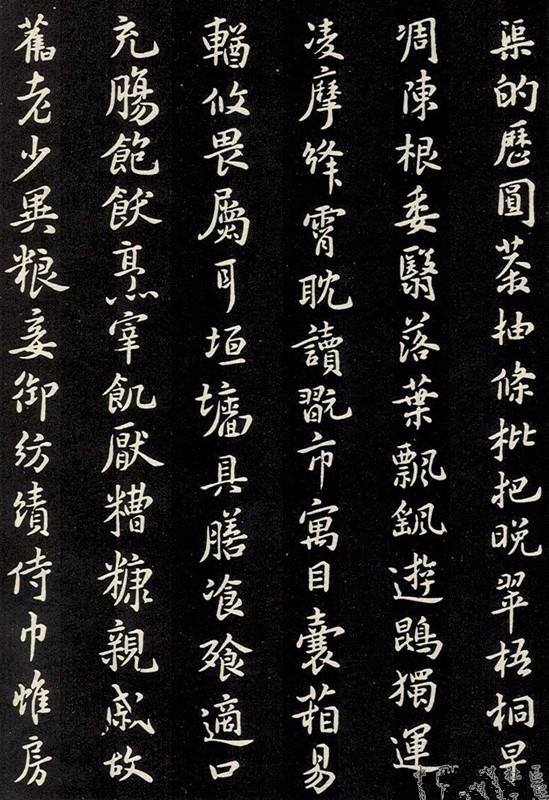 渠的歷圓莽抽條枇把晚翠梧桐早
凋陳根委翳落葉飄颻遊鵾獨運
凌摩絳霄耽讀翫市寓目囊箱易
輶攸畏屬耳垣墻具膳飡飧適口
充腸飽飫烹宰飢厭糟糠親戚故
舊老少異粮妾御紡績侍巾帷房